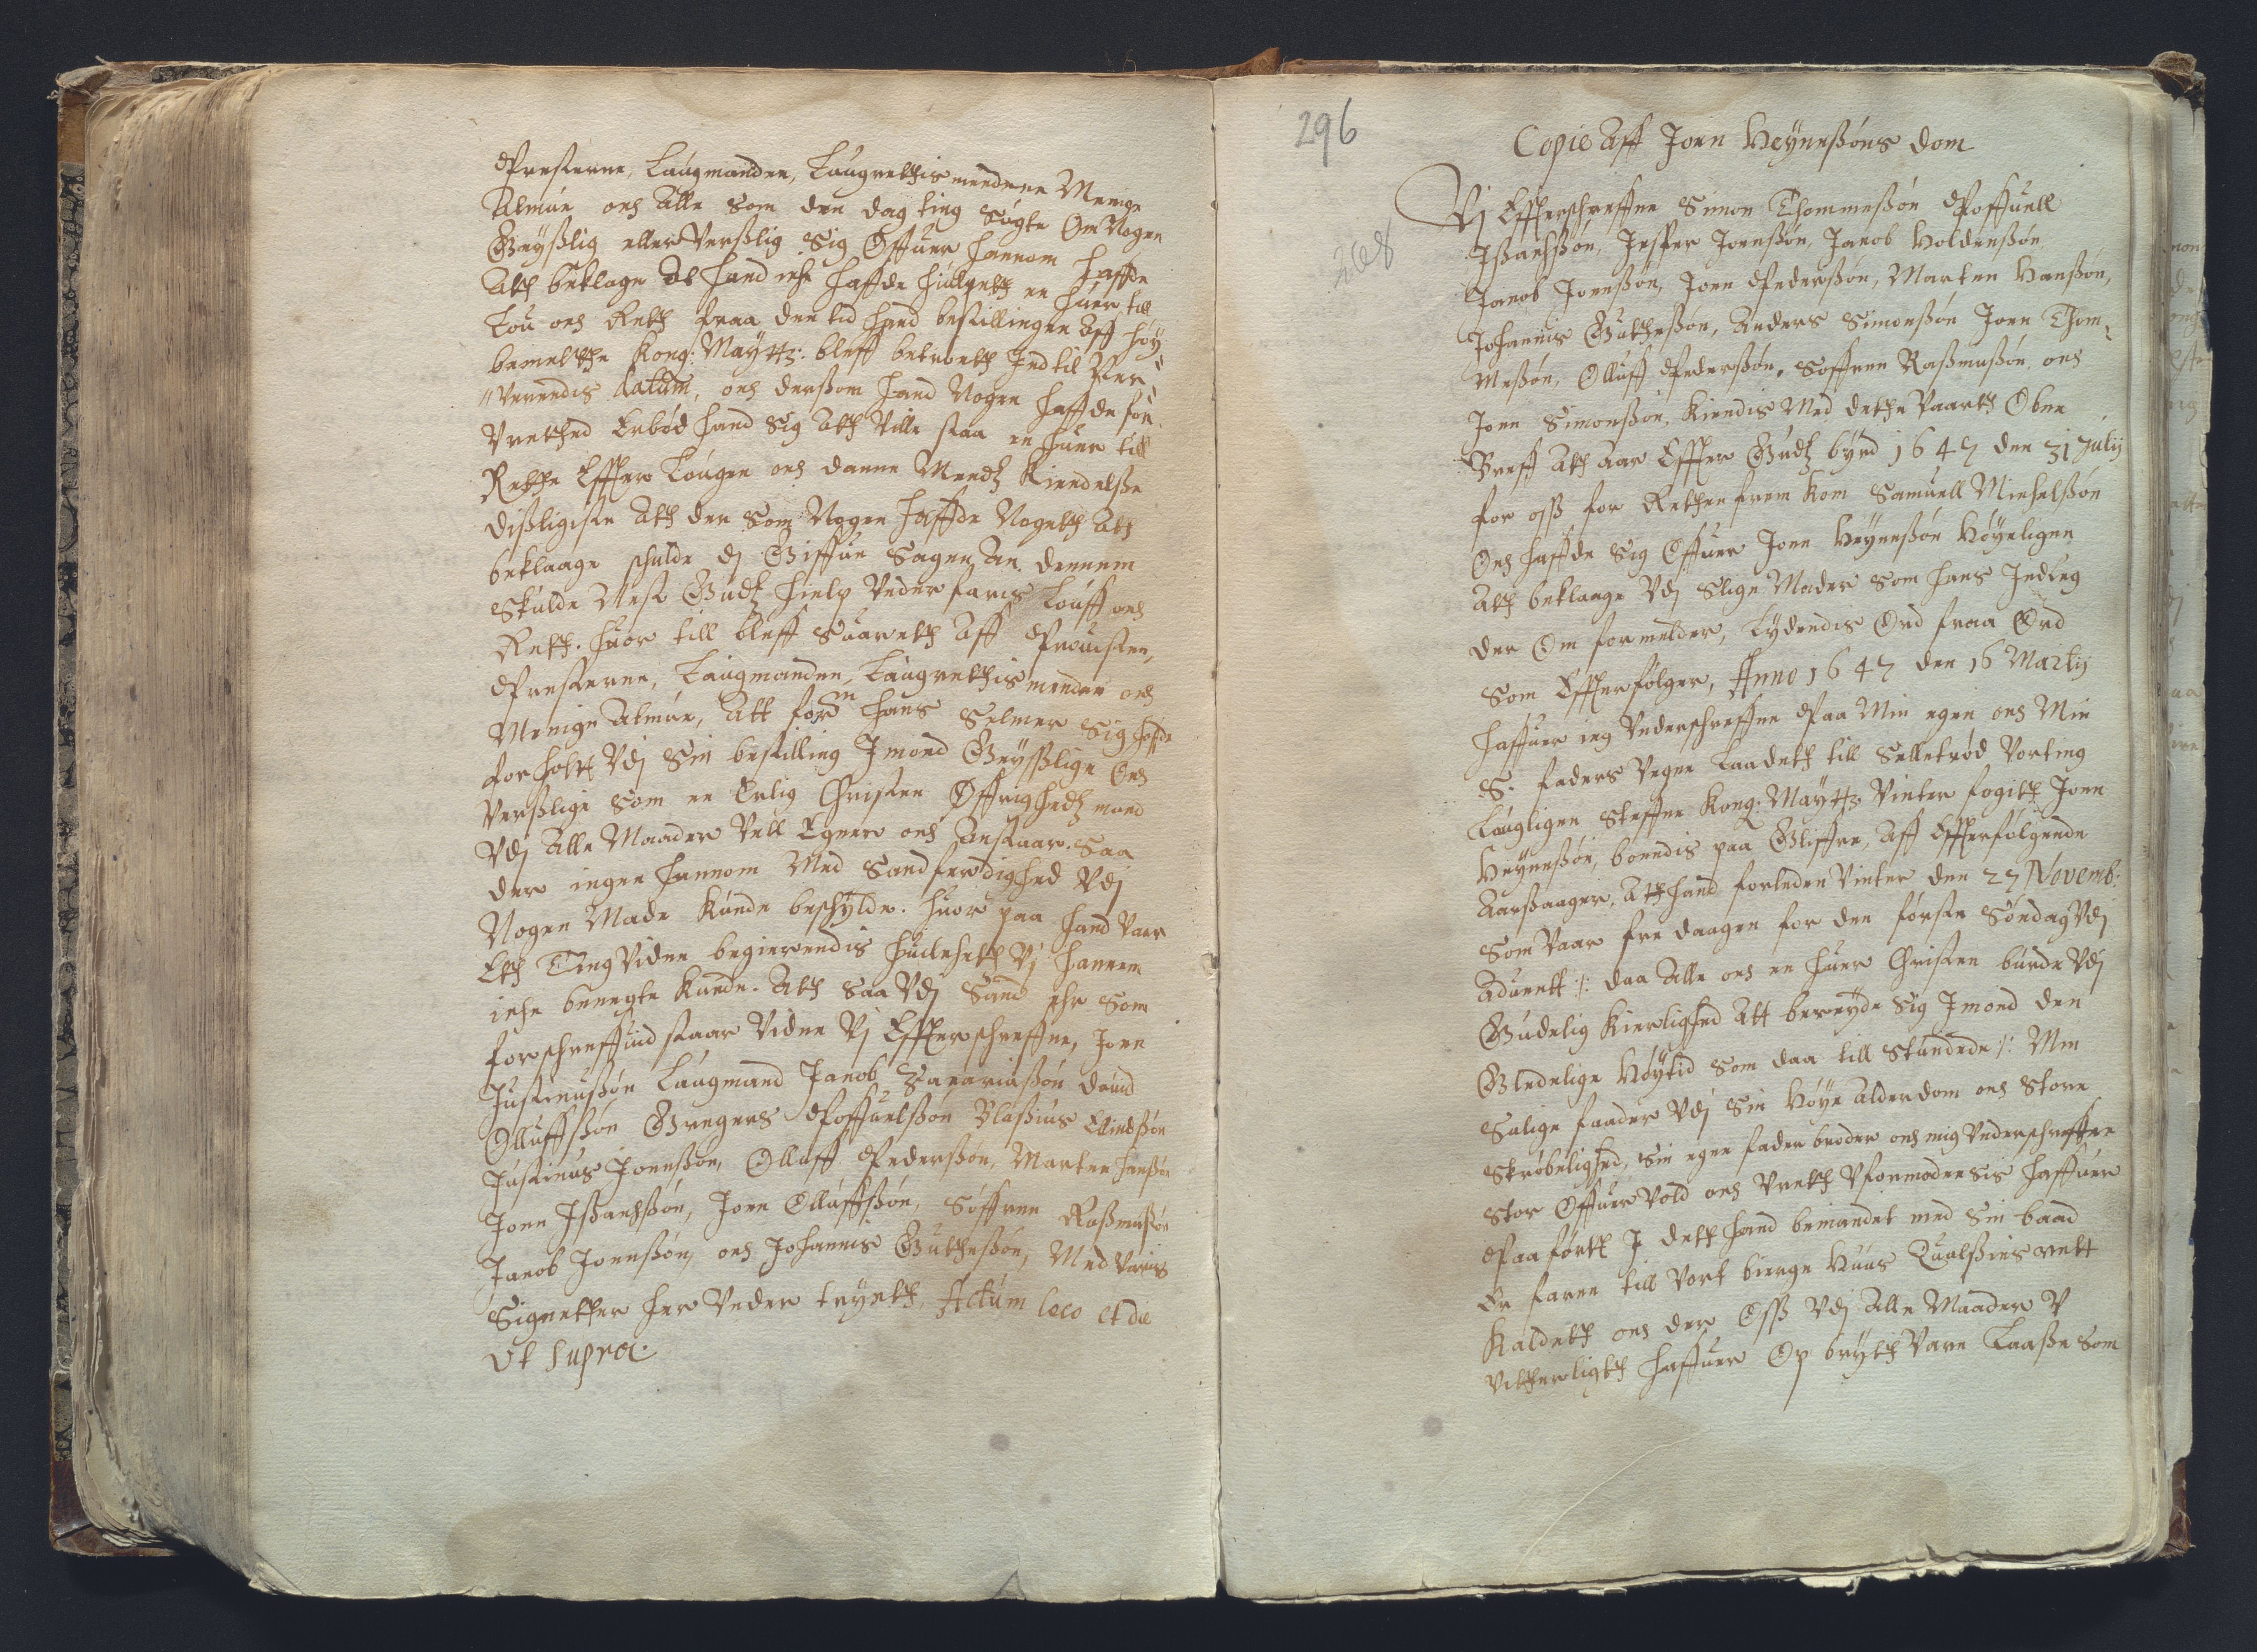 Presterne, Laugmanden, Laugrettismendene Menige
Almue och Alle som den dag ting Søgte Om Nogen
Geystlig eller Verslig Sig Offuer hannom haffde
Att beklage At hand iche haffde hiulpett en huer till
Lou och Rett fraa den tid hand bestillingen Aff høy
bemelte Kong: Maytz: bleff betroett Indtil Per-
uerendis datum, och dersom hand Nogen haffde for
Vretted Erbød hand Sig Att Ville staa en huer till
Rette Effter Lougen och danne Mendz Kiendelsse
disligiste Att den som Nogen haffde Nogett Att
beklaage schulde dj Giffue Sagen An. dennem
Skulde Nest Gudz hielp Vederfaris Louff och
Rett. huor till bleff Suarett Aff Prousten,
Presterne, Laugmanden, Laugrettismenden och
Menige Almue, Att forn hans Selmer Sig hafde
forholtt Vdj Sin bestilling Imoed Geystlige Och
Verslige som en Erlig Christen Øffrighedz mand
Vdj Alle Maader Vell Egner och Anstaar. Saa
der ingen hannom Med Sandferdighed Vdj
Nogen Made Kunde beschylde. huor paa hand Vaar
Ett Ting Vidne begierendis huilchett Vj hannem
iche benegte Kunde. Att saa Vdj Sand ehr Som
forschreffuid staar Vidne Vj Effterschreffne, Joen
Justinussøn Laugmand Jacob Zacariassøn Dauid
Olluffssøn Gregers Poffuelssøn Blasius Eliudssøn
Justinus Joenssøn, Olluff Pederssøn, Marten hanssøn
Joen Issachssøn, Joen Olluffssøn, Søffren Rasmussøn
Jacob Joenssøn, och Johannis Guttessøn, Med Vaaris
Signetter her Vnder tryckt, Actum loco et die
Ut supra.
296
268
Copie Aff Joen Heynessøns dom
Vj Effterschreffne Simon Thommessøn Poffuell
Issachssøn, Jesper Joenssøn, Jacob Holdenssøn
Jacob Joenssøn, Joen Pederssøn, Marten Hanssøn,
Johannis Guttessøn, Anders Simonssøn Joen Thom-
messøn, Olluff Pederssøn, Søffren Rasmussøn och
Joen Simonssøn, Kiendis Med dette Vaartt Obne
Breff Att Aar Effter Gudz byrd 1647 den 31 Julij
for oss for Retten frem Kom Samuell Michelssøn
Och haffde Sig Offuer Joen Heynessøn Høyeligen
Att beklaage Vdj Slige Mader som hans Indleg
der Om formelder, Lydendis Ord fraa Ord
Som Effterfølger, Anno 1647 den 16 Martij
haffuer ieg Vnderschreffne Paa Min egen och Min
S. faders Vegne Laadett till Selletrød Vorting
Laugligen Steffne Kong: Maytz. Vinter fogitt Joen
Heynessøn, boendis paa Gliffre, Aff Effterfølgende
Aarsaager, Att hand forleden Vinter den 27 Novemb:
Som Vaar fre daagen for den første Søndag Vdj
Aduentt :/: daa Alle och en huer Christen burde Vdj
Gudelig Kierlighed Att bereyde Sig Imoed den
Gledelige Høytid som daa till Stundede :/: Min
Salige faader Vdj Sin Høye Alderdom och Store
Skrøbelighed, Sin egen fader broder och mig Vnderschreffne
Stor Offuer Vold och Vrett Vformodensis haffuer
Paa førtt I dett hand bemandet med Sin baad
Er faren till Vort bierge Huus Tualssins rett
Kaldett och der Oss Vdj Alle Maader V
Vitterligtt haffuer Op brytt Vare Laasse Som